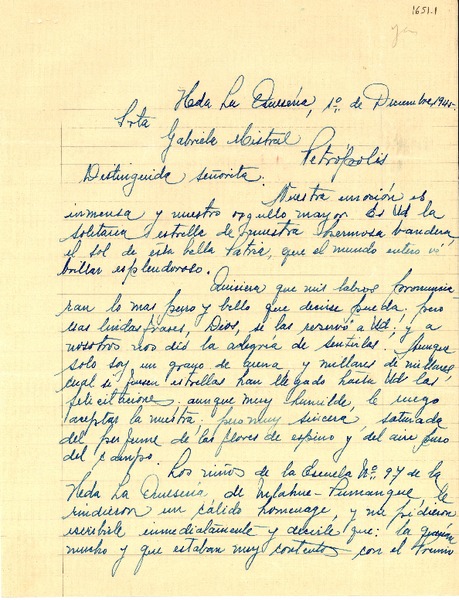 1651.1
Hcda La Quesería, 1º de Diciembre, 1945.
Srta
Gabriela Mistral
Petrópolis
Distinguida señorita.
Nuestra emoción es
inmensa y nuestro orgullo mayor. Es Ud la
solitaria estrella de nuestra hermosa bandera,
el sol de esta bella Patria, que el mundo entero vé
brillar esplendoroso.
Quisiera que mis labios pronuncia
ran lo mas puro y bello que decirse pueda, pero
esas lindas frases, Dios, se las reservó a Ud; y a
nosotros nos dió la alegría de sentirlas. Aunque
solo soy un grano de arena y millares de millares
cual si fuesen estrellas han llegado hasta Ud las
felicitaciones. aunque muy humilde, le ruego
aceptar la nuestra. pero muy sincera saturada
del perfume de las flores de espino y del aire puro
del campo.
Los niños de la Escuela Nº 97 de la
Hcda La Quesería de Nilahue-Pumanque, le
rindieron un cálido homenage, y me pidieron
escribirle inmediatamente y decirle que: la quieren
mucho y que estaban muy contentos con el Premio